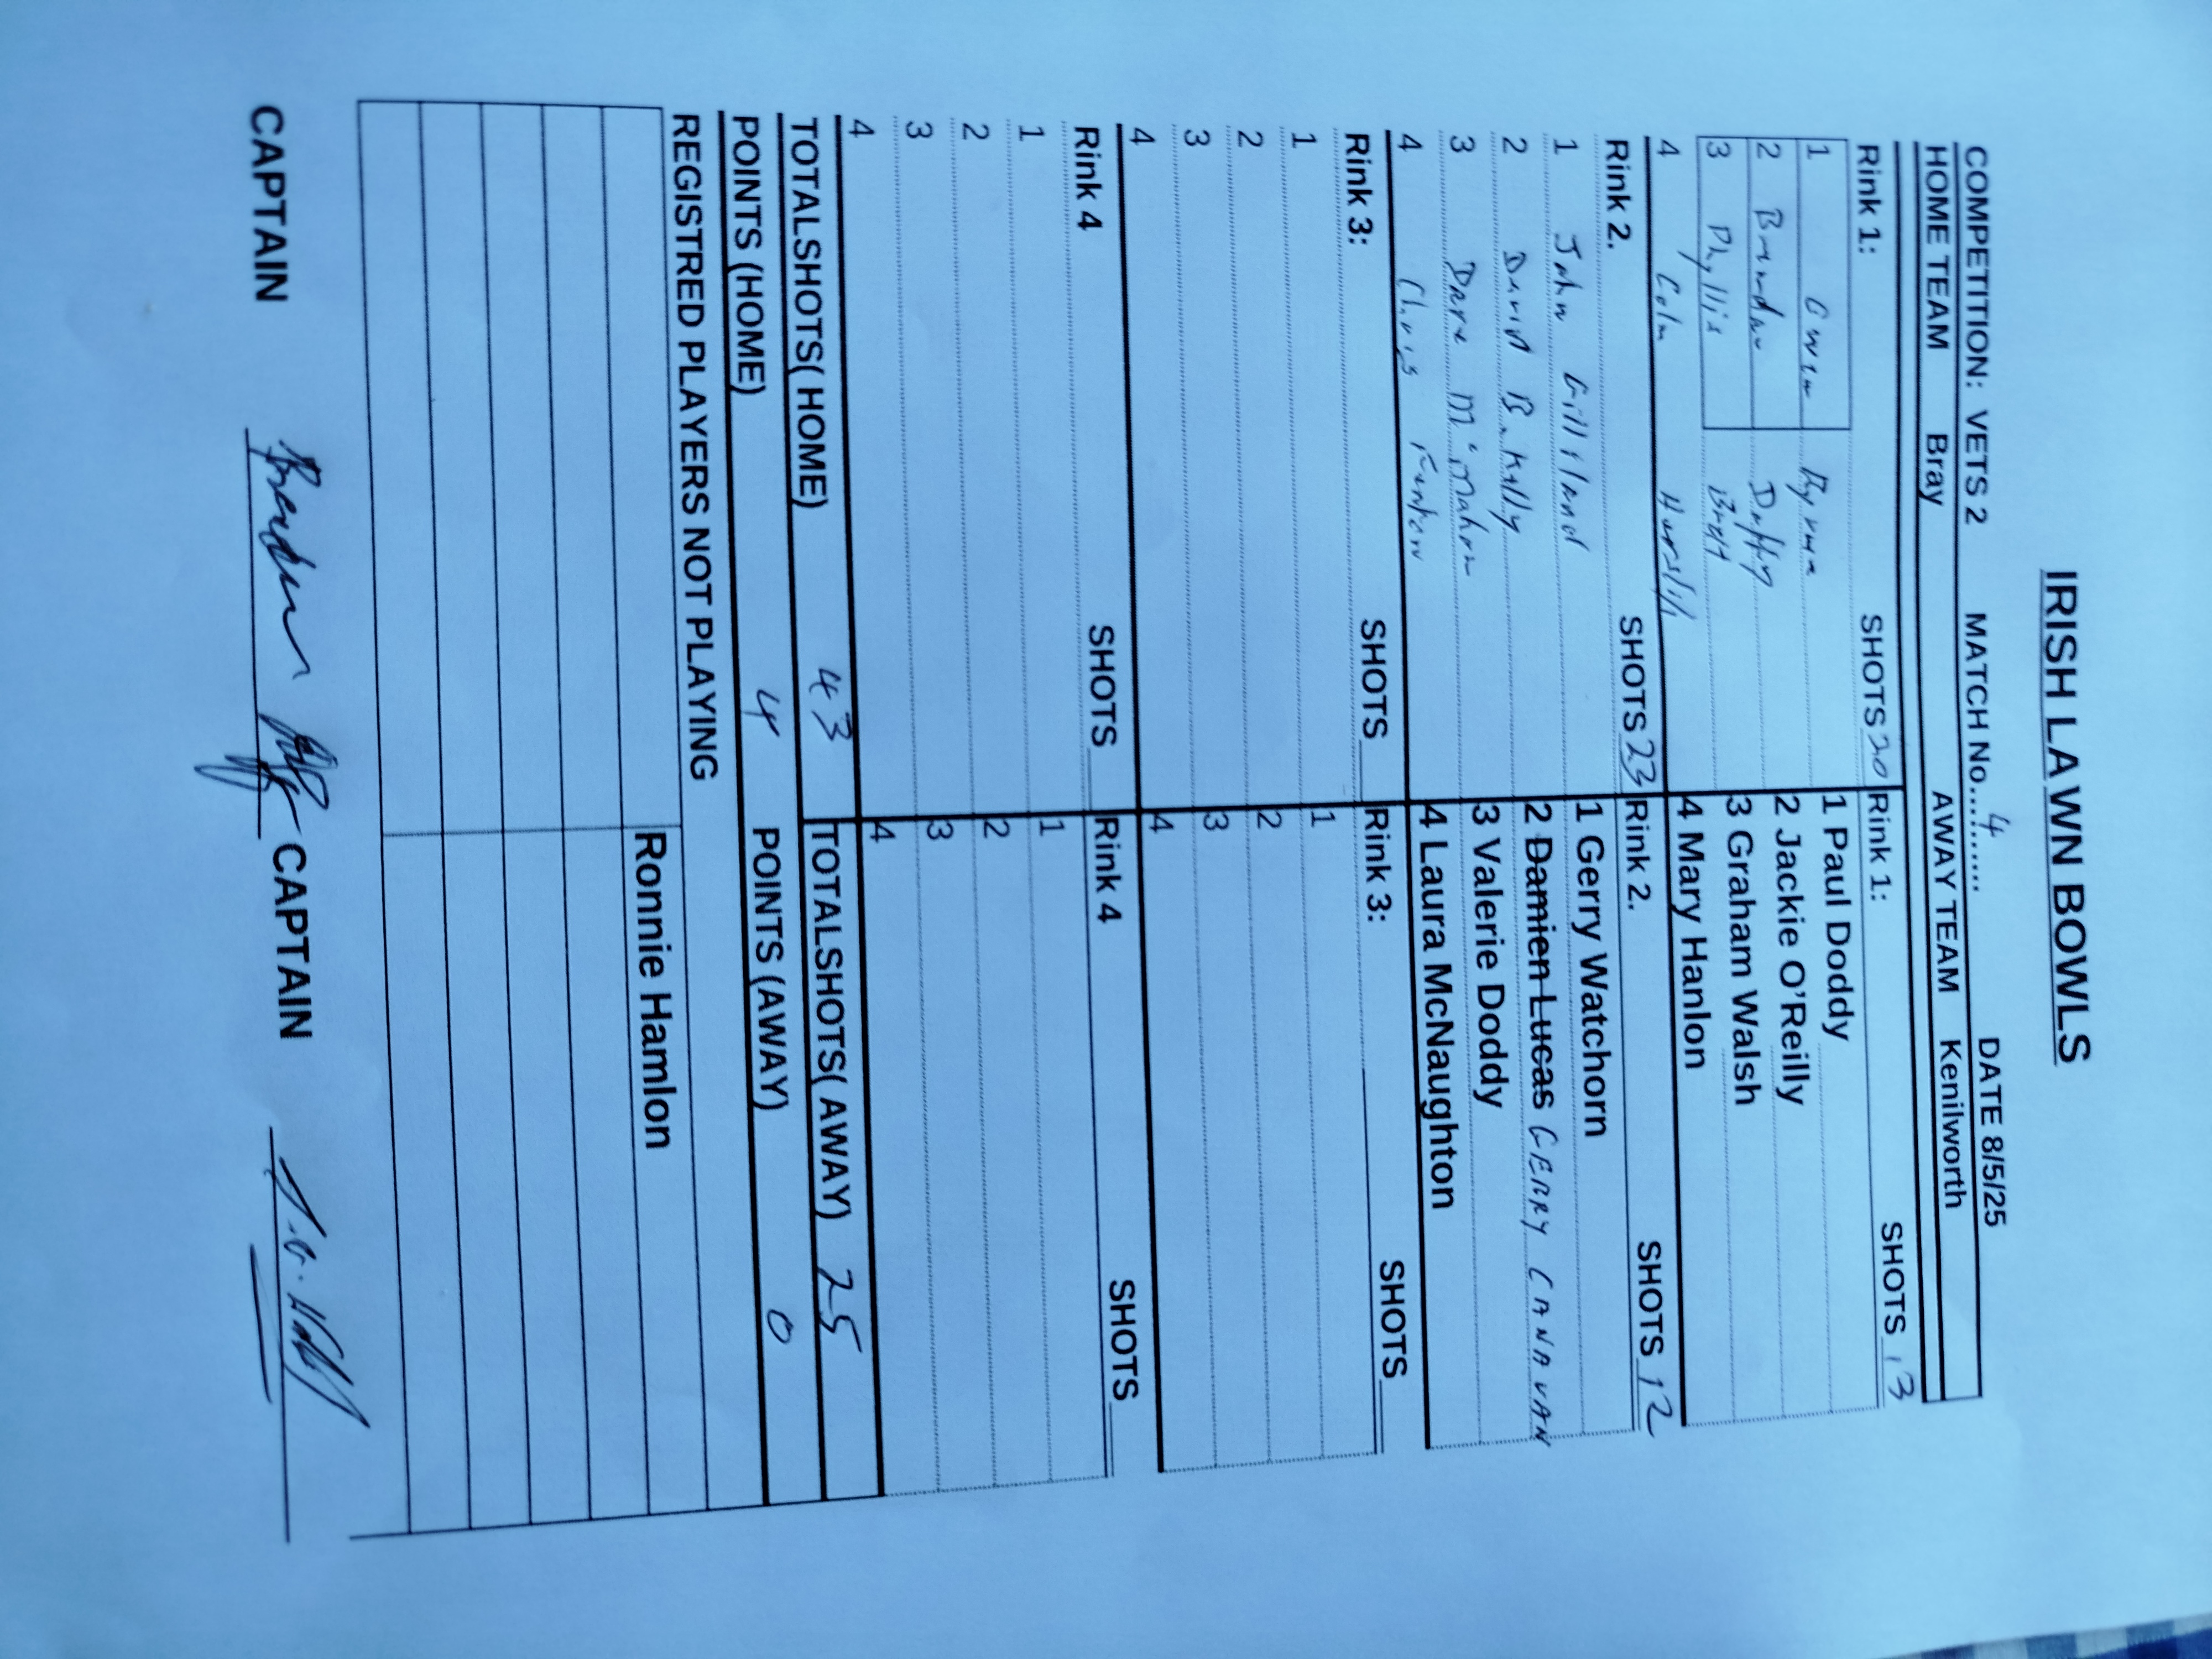 IRISH LAWN BOWLS
COMPETITION: VETS 2 MATCH No....4..... DATE 8/5/25
HOME TEAM Bray AWAY TEAM Kenilworth
Rink 1: SHOTS 20 Rink 1: SHOTS 13
1 Owen Byrne 1 Paul Doddy
2 Brendan Duffy 2 Jackie O'Reilly
3 Phyllis Brett 3 Graham Walsh
4 Colm 4 Mary Hanlon
Rink 2. SHOTS 23 Rink 2. SHOTS 12
1 John Gilliland 1 Gerry Watchorn
2 David B. Kelly 2 Damien Lucas GERRY CANAVAN
3 Dave McMahon 3 Valerie Doddy
4 Chris Fenton 4 Laura McNaughton
Rink 3: SHOTS Rink 3: SHOTS
1 1
2 2
3 3
4 4
Rink 4 SHOTS Rink 4 SHOTS
1 1
2 2
3 3
4 4
TOTALSHOTS( HOME) 43 TOTALSHOTS( AWAY) 25
POINTS (HOME) 4 POINTS (AWAY) 0
REGISTRED PLAYERS NOT PLAYING
Ronnie Hamlon
CAPTAIN Brendan Duffy CAPTAIN